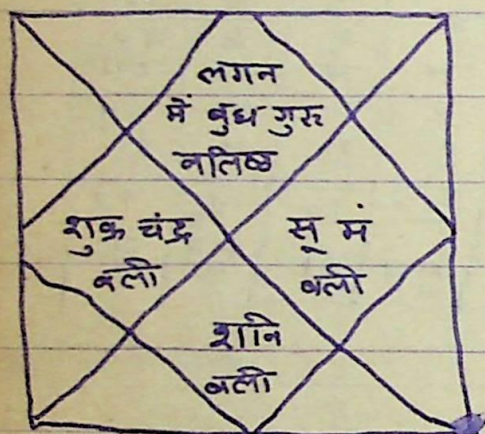 लगन
में बुध गुरू
बलिष्ठ
शुक्र चंद्र
बली
सू मं
बली
शनि
बली